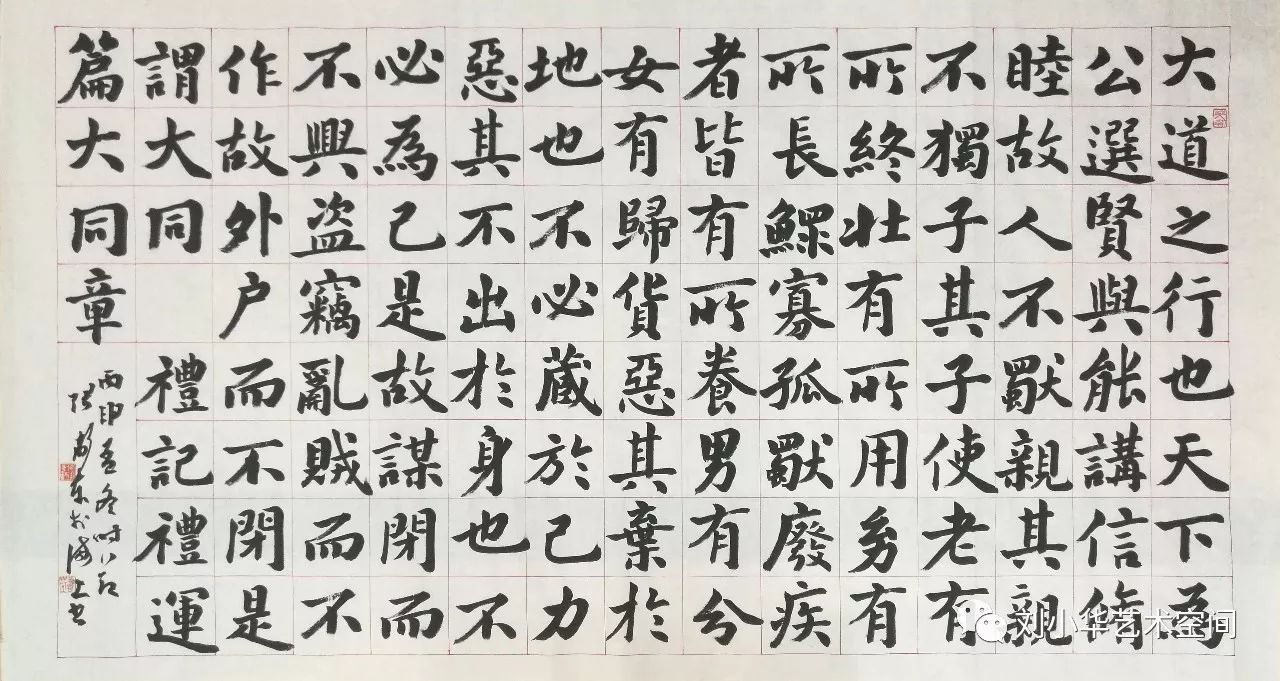 大道之行也天下为
公選賢與能講信脩
睦故人不獨親其親
不獨子其子使老有
所終壯有所用幼有
所長鰥寡孤獨廢疾
者皆有所養男有分
女有歸貨惡其棄於
地也不必藏於己力
惡其不出於身也不
必為己是故謀閉而
不興盜竊亂賊而不
作故外户而不閉是
謂大同 禮記禮運
篇大同章
丙申孟冬時
東於海上書
刘小华艺术空间